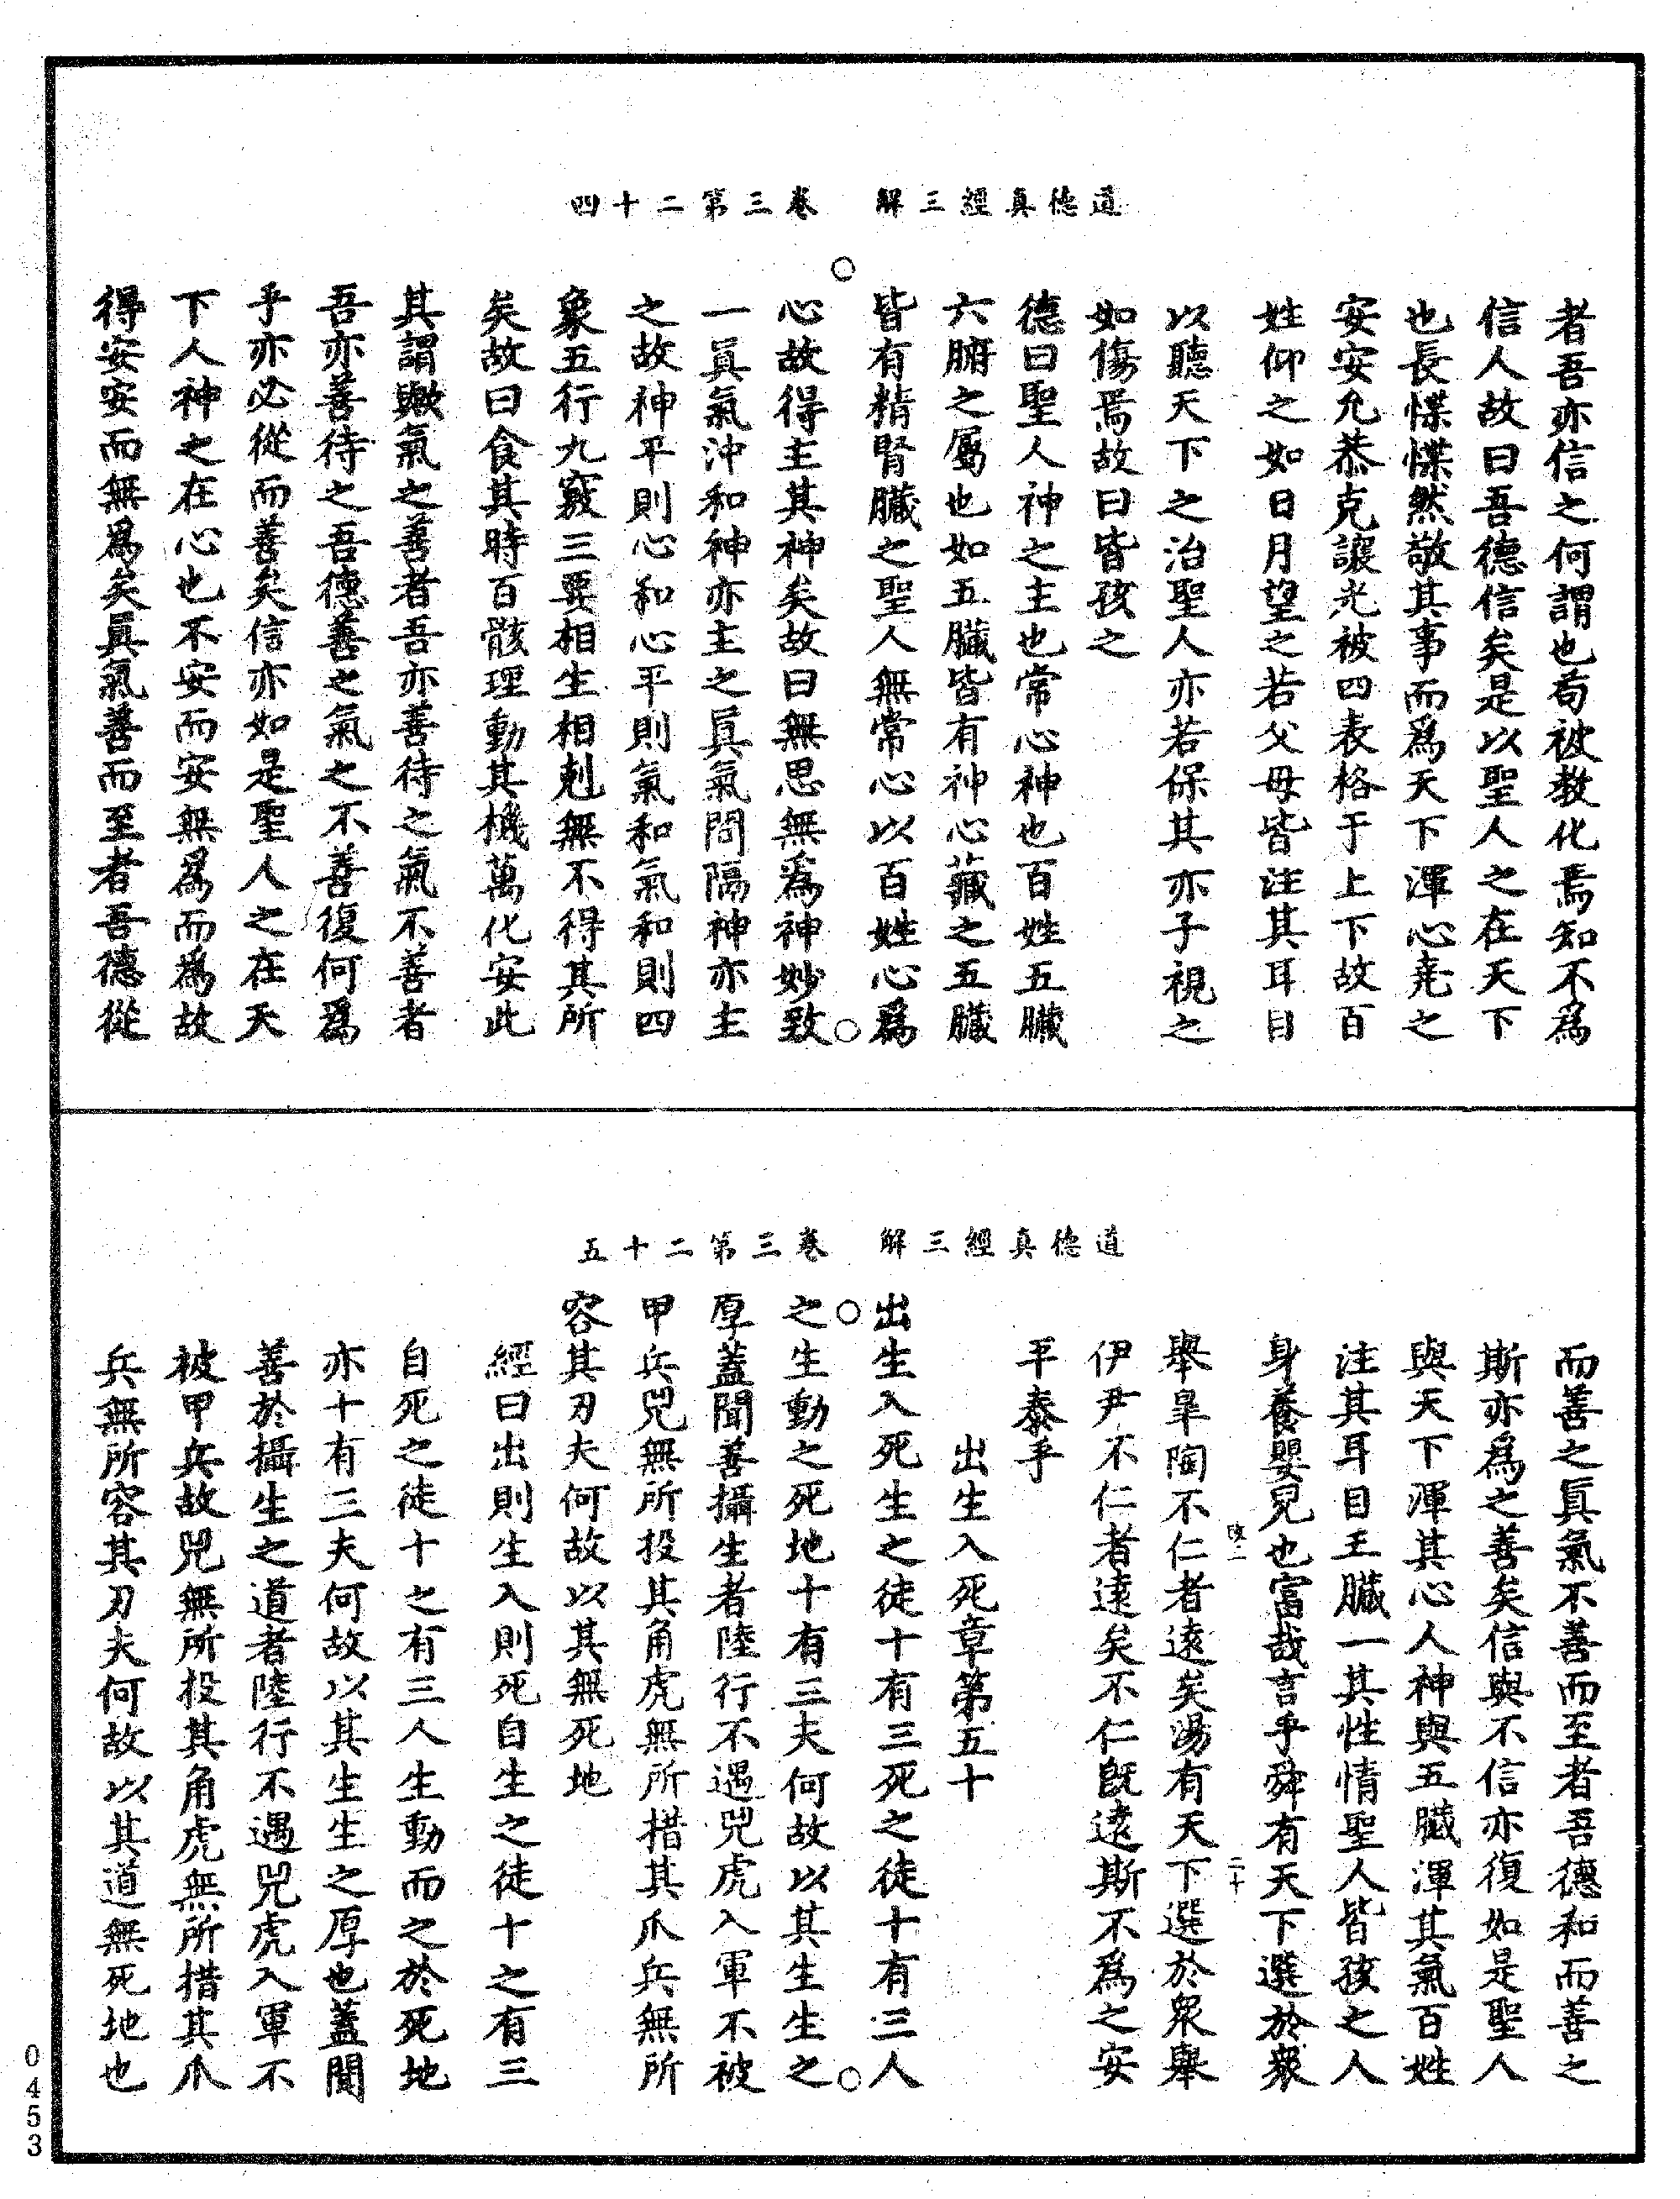 道德真經三解　卷三第二十四
者吾亦信之何謂也苟被教化焉知不為
信人故曰吾德信矣是以聖人之在天下
也長惵惵然敬其事而爲天下渾心堯之
安安允恭克讓光被四表格于上下故百
姓仰之如日月望之若父母皆注其耳目
以聽天下之治聖人亦若保其赤子視之
如傷焉故曰皆孩之
德曰聖人神之主也常心神也百姓五臟
六腑之屬也如五臟皆有神心藏之五臟
皆有精腎臟之聖人無常心以百姓心爲
心故得主其神矣故曰無思無爲神妙致
一眞氣沖和神亦主之眞氣問隔神亦主
之故神平則心和心平則氣和氣和則四
象五行九竅三要相生相剋無不得其所
矣故曰食其時百骸理動其機萬化安此
其謂歟氣之善者吾亦善待之氣不善者
吾亦善待之吾德善之氣之不善復何爲
乎亦必從而善矣信亦如是聖人之在天
下人神之在心也不安而安無爲而爲故
得安安而無爲矣眞氣善而至者吾德從
道德真經三解　卷三第二十五
而善之眞氣不善而至者吾德和而善之
斯亦爲之善矣信與不信亦復如是聖人
與天下渾其心人神與五臟渾其氣百姓
注其耳目王臟一其性情聖人皆孩之人
身養嬰兒也富哉言乎舜有天下選於衆
舉皐陶不仁者遠矣湯有天下選於衆舉
伊尹不仁者遠矣不仁既遠斯不爲之安
平泰乎
出生入死章第五十
出生入死生之徒十有三死之徒十有三人
之生動之死地十有三夫何故以其生生之
厚蓋聞善攝生者陸行不遇兕虎入軍不被
甲兵兕無所投其角虎無所措其爪兵無所
容其刃夫何故以其無死地
經曰出則生入則死自生之徒十之有三
自死之徒十之有三人生動而之於死地
亦十有三夫何故以其生生之厚也蓋聞
善於攝生之道者陸行不遇兕虎入軍不
被甲兵故兕無所投其角虎無所措其爪
兵無所容其刃夫何故以其道無死地也
0453